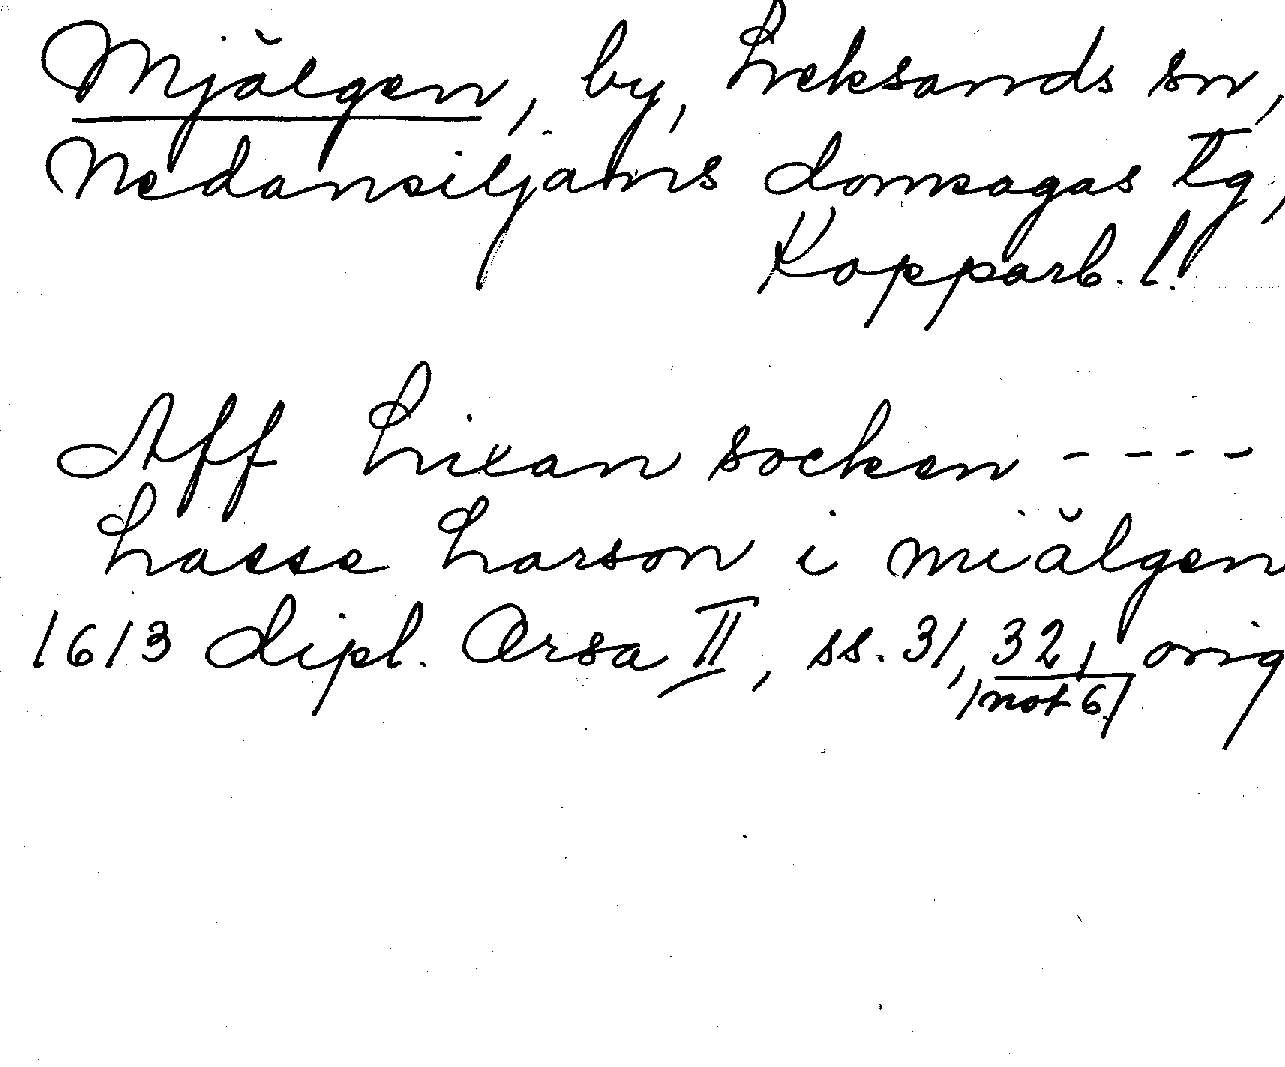 Mjälgen, by, Leksands sn,
Nedansiljans domsagas tg,
Kopparb. l.
Aff Lixan socken ----
Lasse Larson i miälgen
1613 dipl. Orsa II, ss. 31, 32, orig
/not 6/